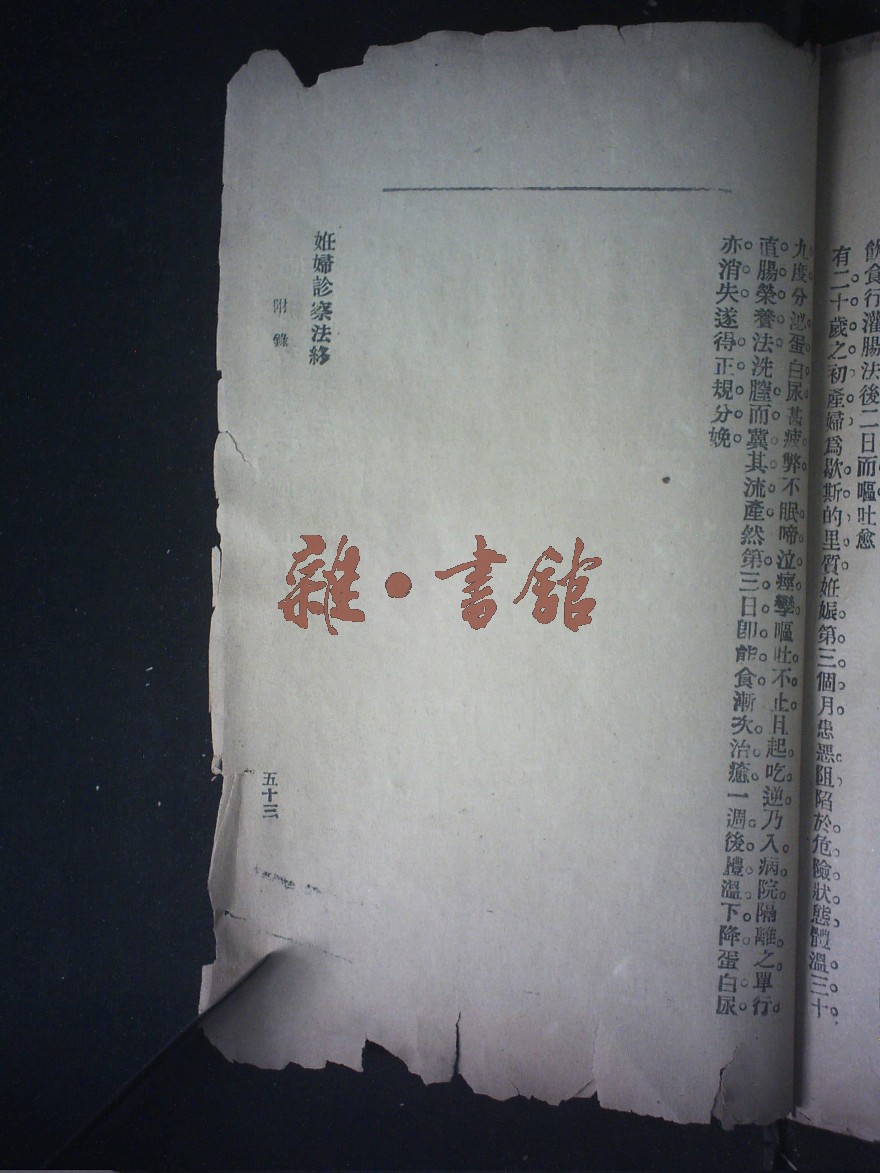 飲食行灌腸法後二日而嘔吐愈
有二十歲之初產婦爲歇斯的里質妊娠第三個月患惡阻陷於危險狀態體溫三十
九度分泌蛋白尿甚疲弊不眠啼泣痙攣嘔吐不止且起吃逆乃入病院隔離之單行
直腸榮養法洗膣而冀其流產然第三日卽能食漸次治癒一週後體溫下降蛋白尿
亦消失遂得正規分娩
妊婦診察法終
附錄
五十三
雜•書館